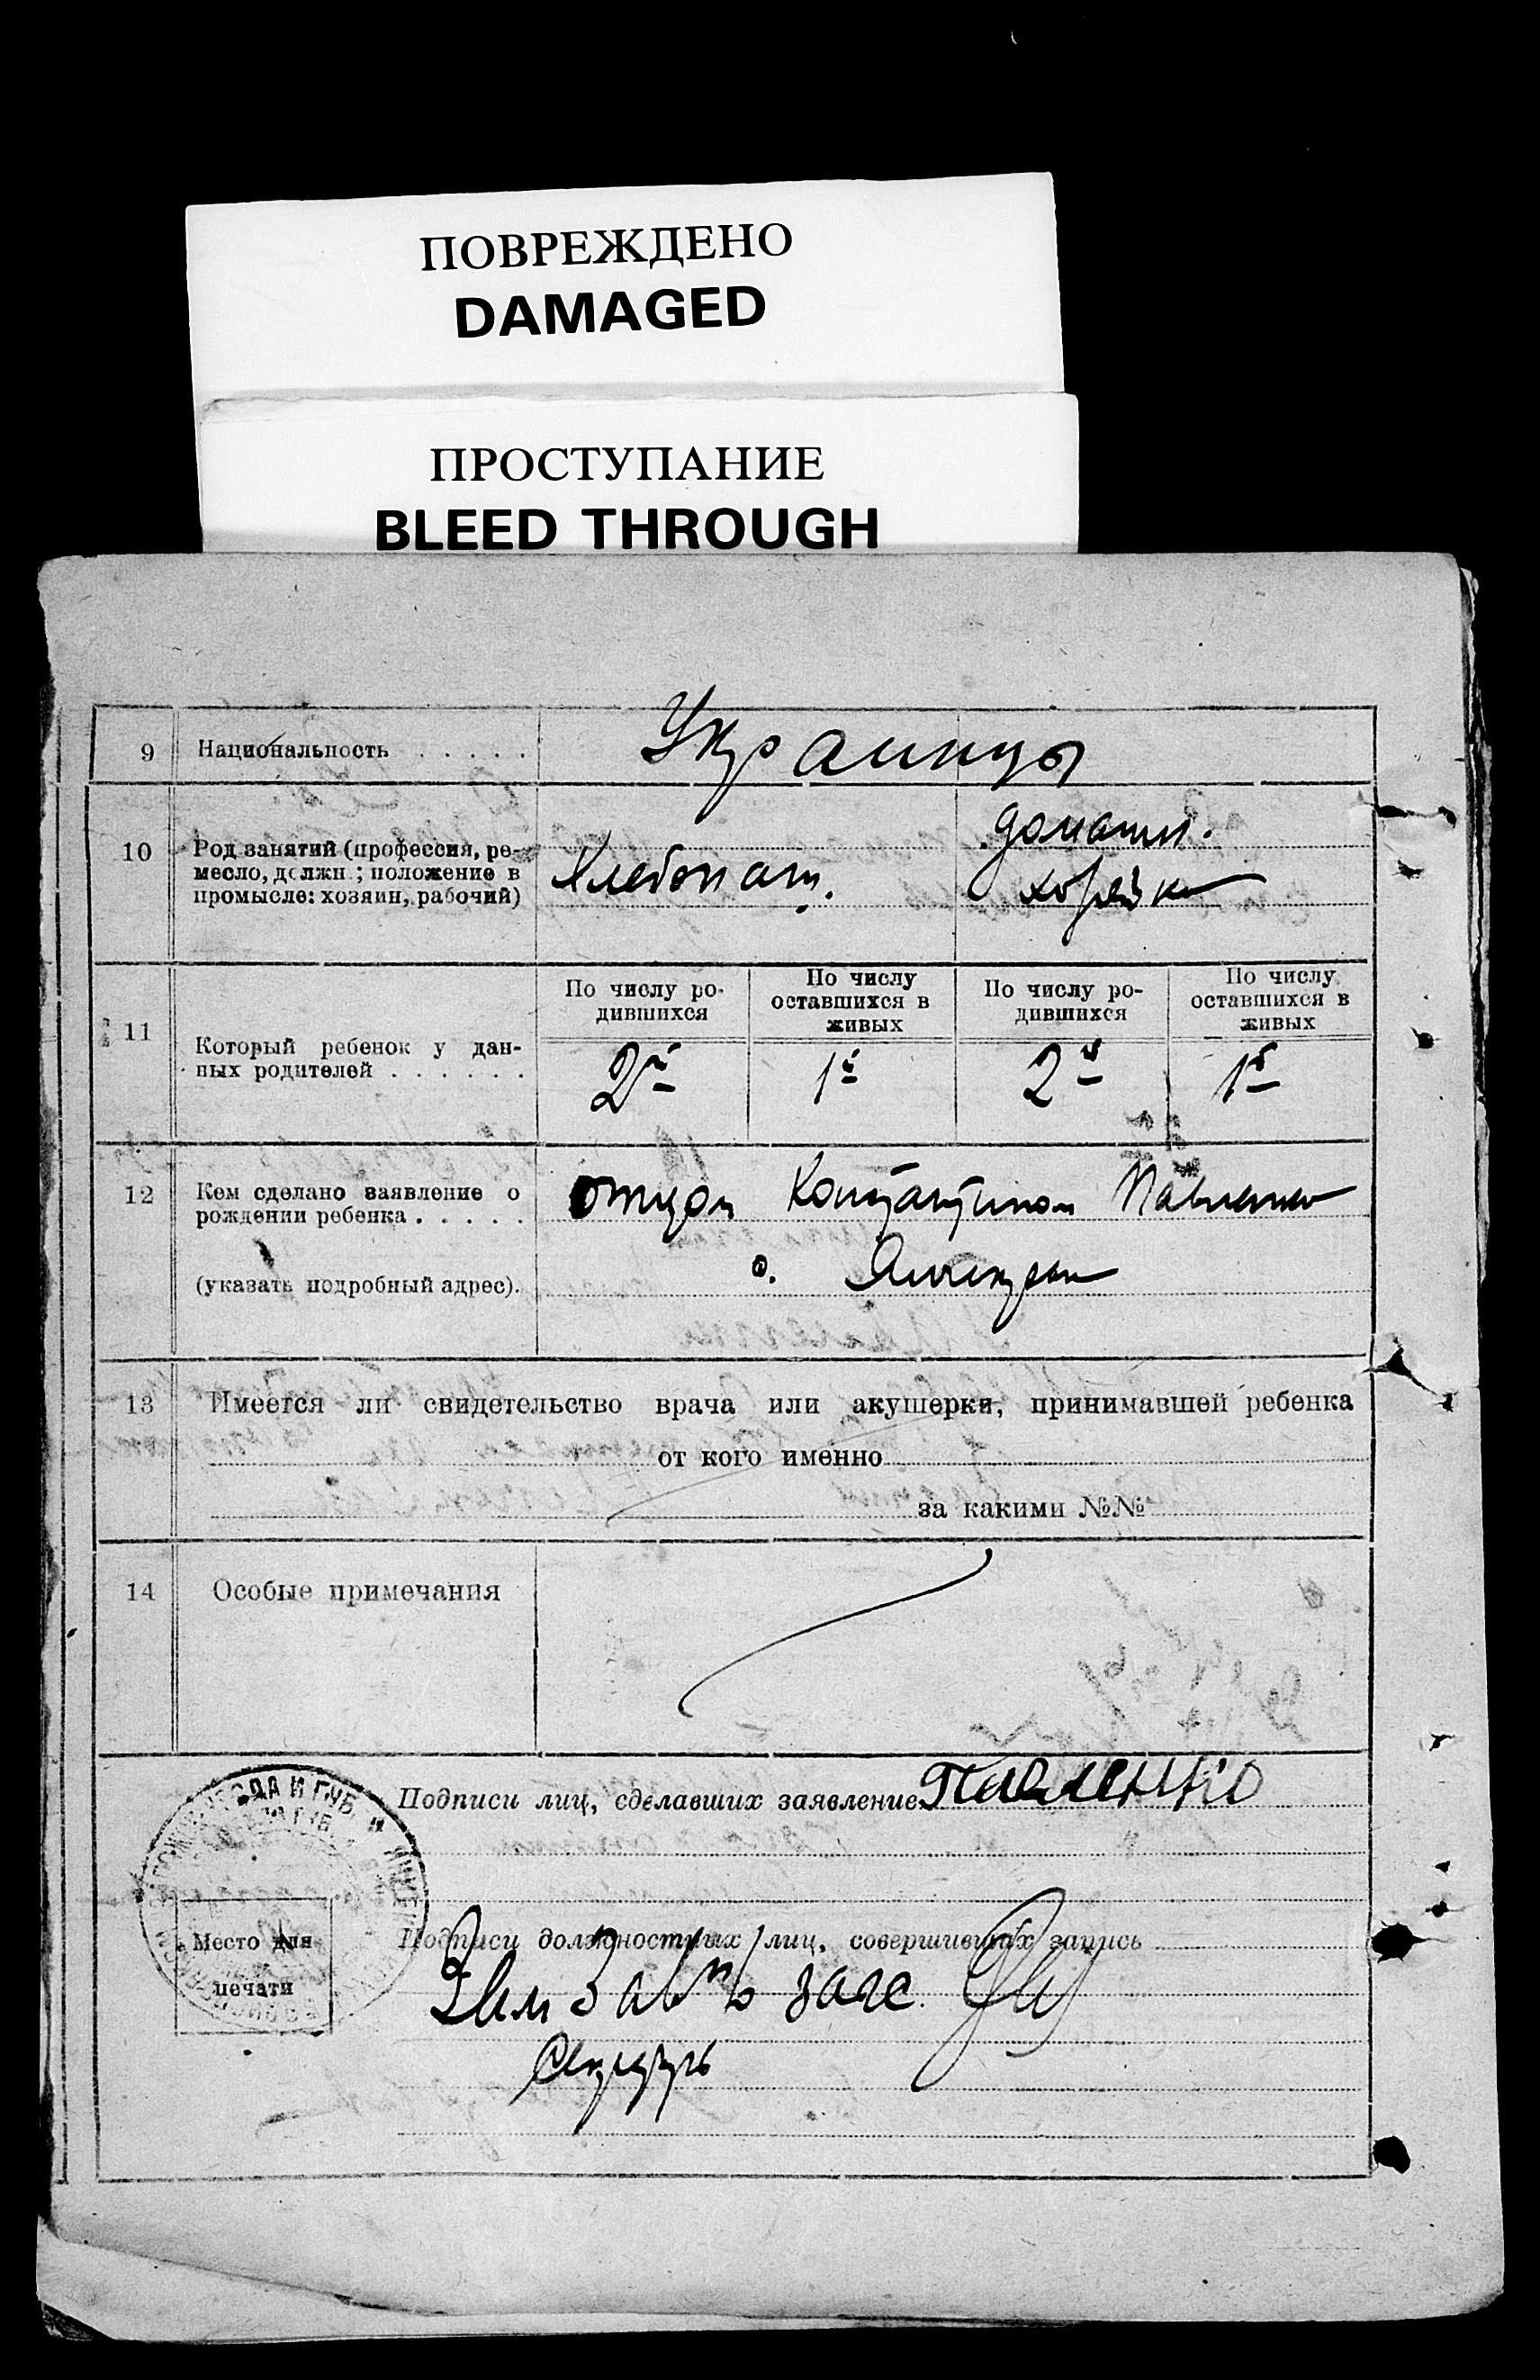 ПОВРЕЖДЕНО
DAMAGED
ПРОСТУПАНИЕ
BLEED THROUGH
9 Национальность . . . . . Украинцы
10 Род занятий (профессия, ре-
месло, должн.; положение в
промысле: хозяин, рабочий)
Хлебопаш.
домашн.
хозяйка
11 Который ребенок у дан-
ных родителей . . . . . .
По числу ро-
дившихся
По числу
оставшихся в
живых
По числу ро-
дившихся
По числу
оставшихся в
живых
2й 1й 2й 1й
12 Кем сделано заявление о
рождении ребенка . . . . .
(указать подробный адрес).
отцом Константином Павленко
с.
13 Имеется ли свидетельство врача или акушерки, принимавшей ребенка
от кого именно
за какими №№
14 Особые примечания
Подписи лиц, сделавших заявление Павленко
Место для
печати
Подписи должностных лиц, совершивших запись
загс.
Секретарь